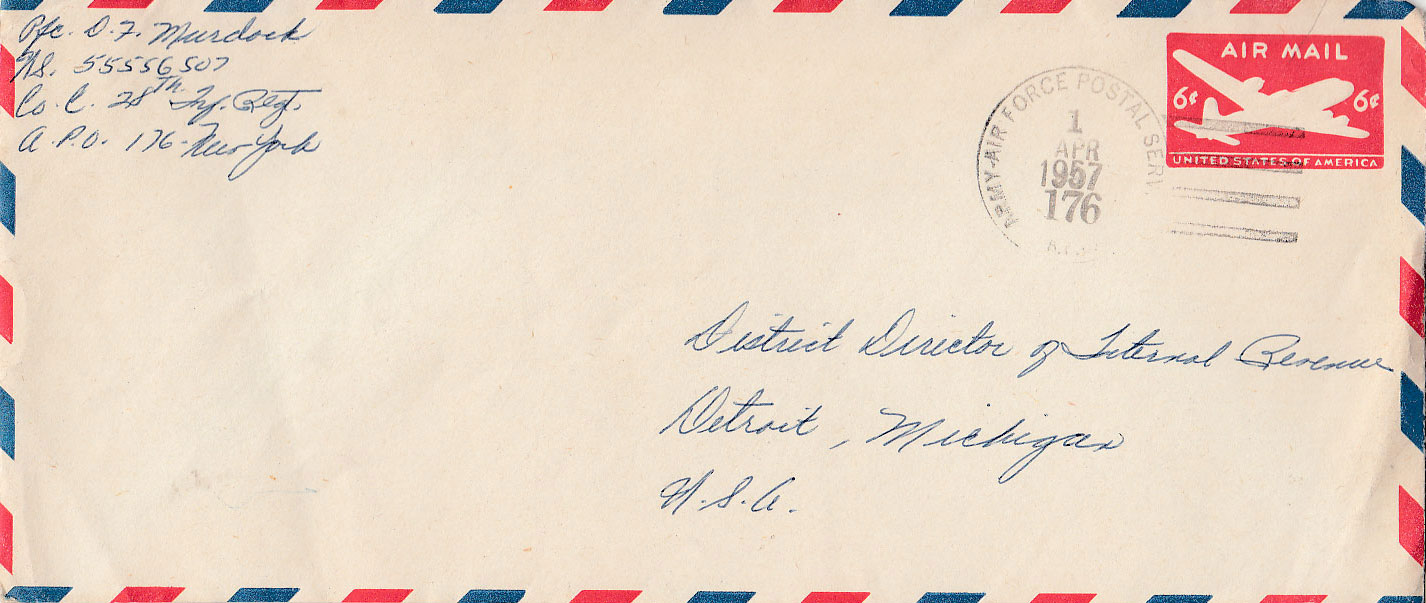 Pfc. D. F. Murdock
US. 55556507
Co. C. 28th Inf. Regt.
A.P.O. 176 - New York
AIR MAIL
6¢ 6¢
UNITED STATES OF AMERICA
ARMY-AIR FORCE POSTAL SERV
1
APR
1957
176
District Director of Internal Revenue
Detroit, Michigan
U.S.A.